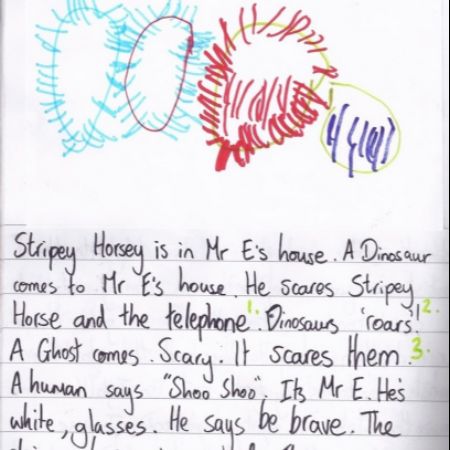 Stripey Horsey is in Mr E's house. A Dinosaur
comes to Mr E's house. He scares Stripey
Horse and the telephone. 1. Dinosaurs 'roars'! 2.
A Ghost comes. Scary. It scares them. 3.
A human says "Shoo Shoo". Its Mr E. He's
white, glasses. He says be brave. The